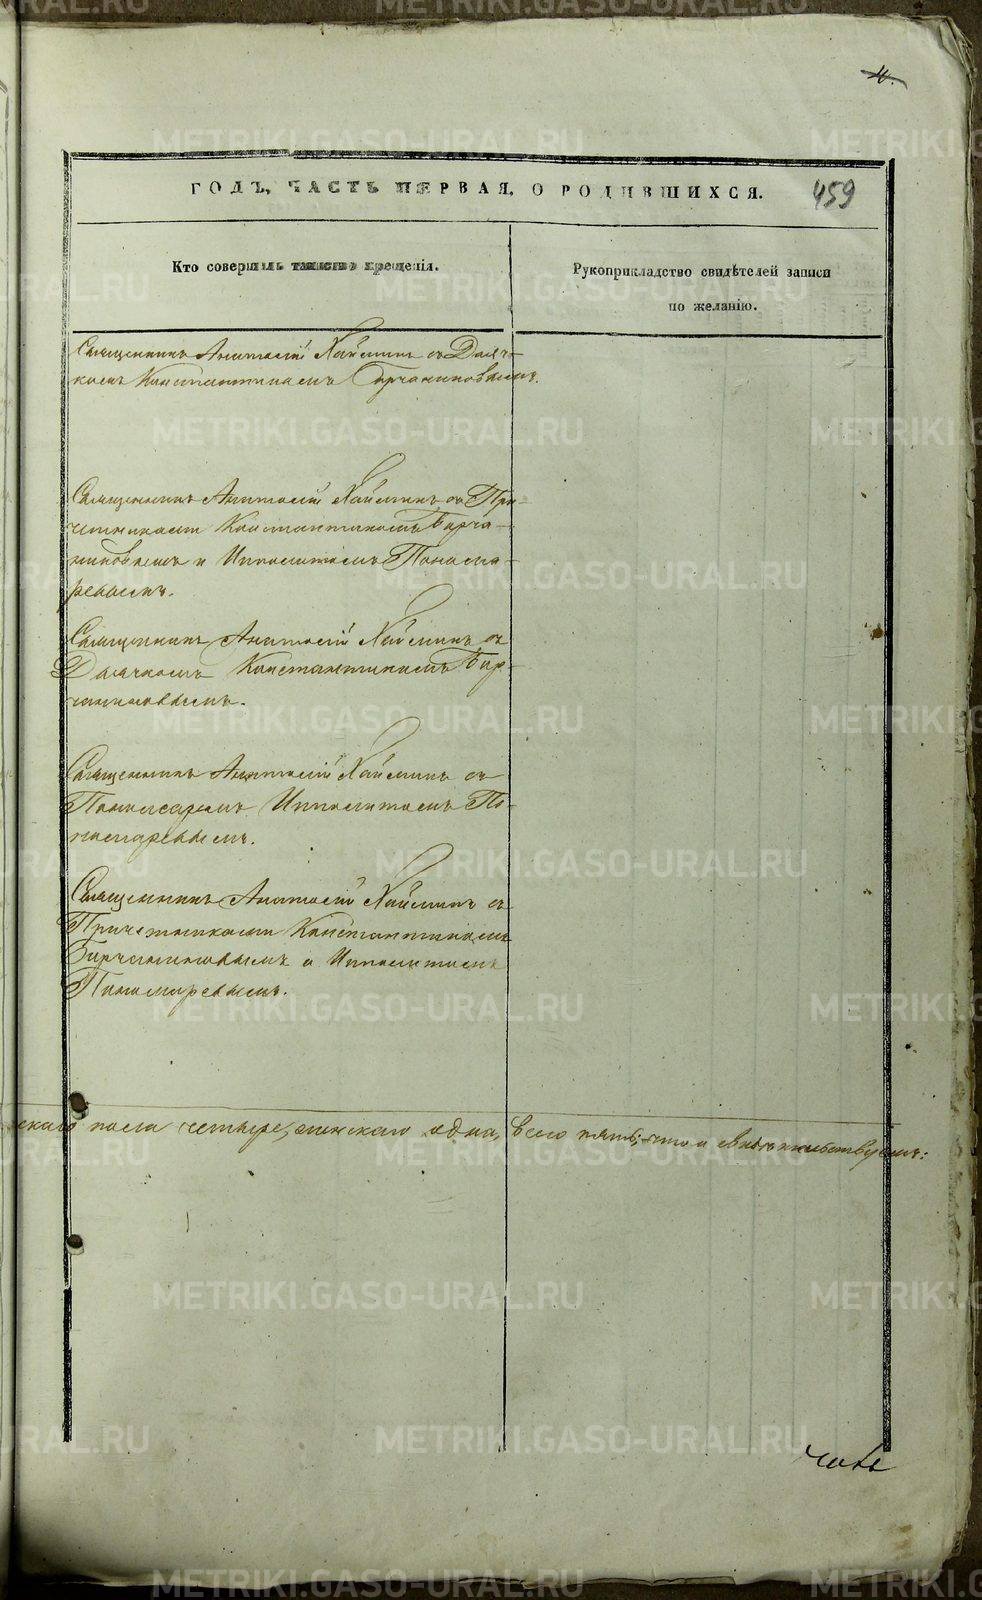 4.
ГОДЪ, ЧАСТЬ ПЕРВАЯ, О РОДИВШИХСЯ.
459
Кто совершилъ таинство крещенія.
Рукоприкладство свидѣтелей записи
по желанію.
Священникъ Анатолій Хайминъ съ Дьяч-
комъ Константиномъ Бирчаниновымъ.
Священникъ Анатолій Хайминъ съ При-
четниками Константиномъ Бирча-
ниновымъ и Ипполитомъ Понома-
ревымъ.
Священникъ Анатолій Хайминъ съ
Дьячкомъ Константиномъ Бир-
чаниновымъ.
Священникъ Анатолій Хайминъ съ
Пономаремъ Ипполитомъ По-
номаревымъ.
Священникъ Анатолій Хайминъ съ
Причетниками Константиномъ
Бирчаниновымъ и Ипполитомъ
Пономаревымъ.
скаго пола четыре, женскаго одна, всего пять; что и свидѣтельствуемъ:
METRIKI.GASO-URAL.RU